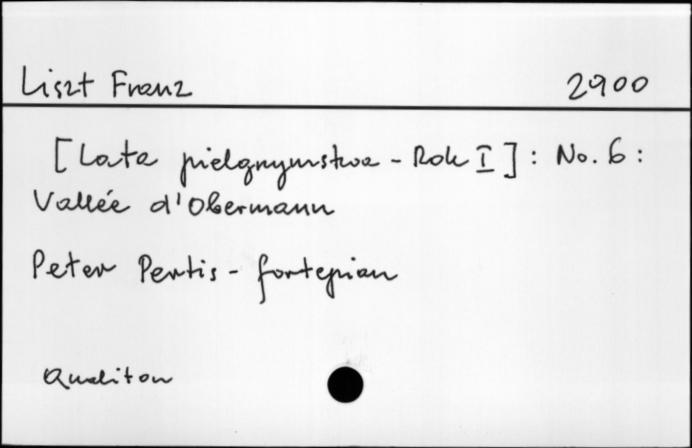 Liszt Franz 2900
[Lata pielgrzymstwa - Rok I] : No. 6 :
Vallée d'Obermann
Peter Pertis - fortepian
Qualiton